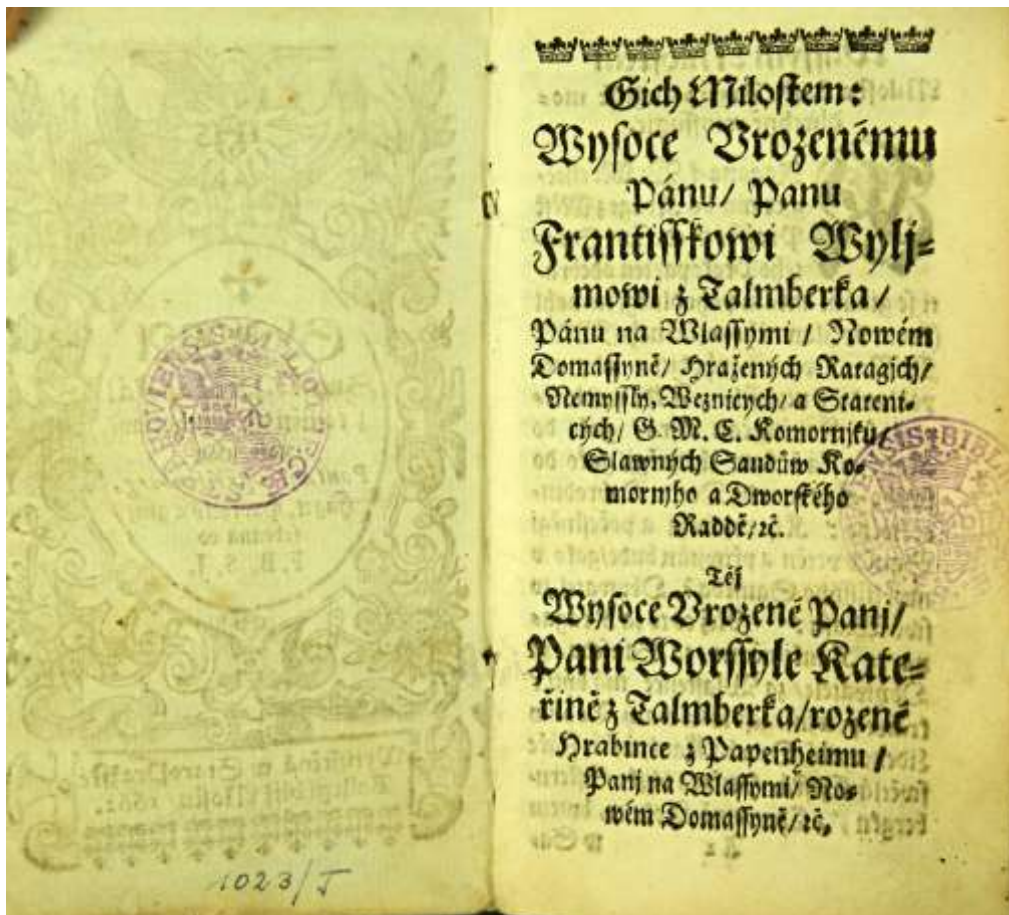 1023/I
Gich Milostem:
Wysoce Vrozenému
Pánu/ Panu
Frantisskowi Wylj-
mowi z Talmberka/
Pánu na Wlassymi / Nowém
Domassyně/ Hražených Ratagjch/
Nemyssly, Weznicych/ a Stateni-
cých/ G. M. C. Komornjku/
Slawných Saudůw Ko-
mornjho a Dworského
Raddě/ ꝛč.
Též
Wysoce Vrozené Panj/
Pani Worssyle Kate-
řině z Talmberka/ rozené
Hrabince z Papenheimu /
Panj na Wlassymi/ No-
wém Domassyně/ ꝛč.